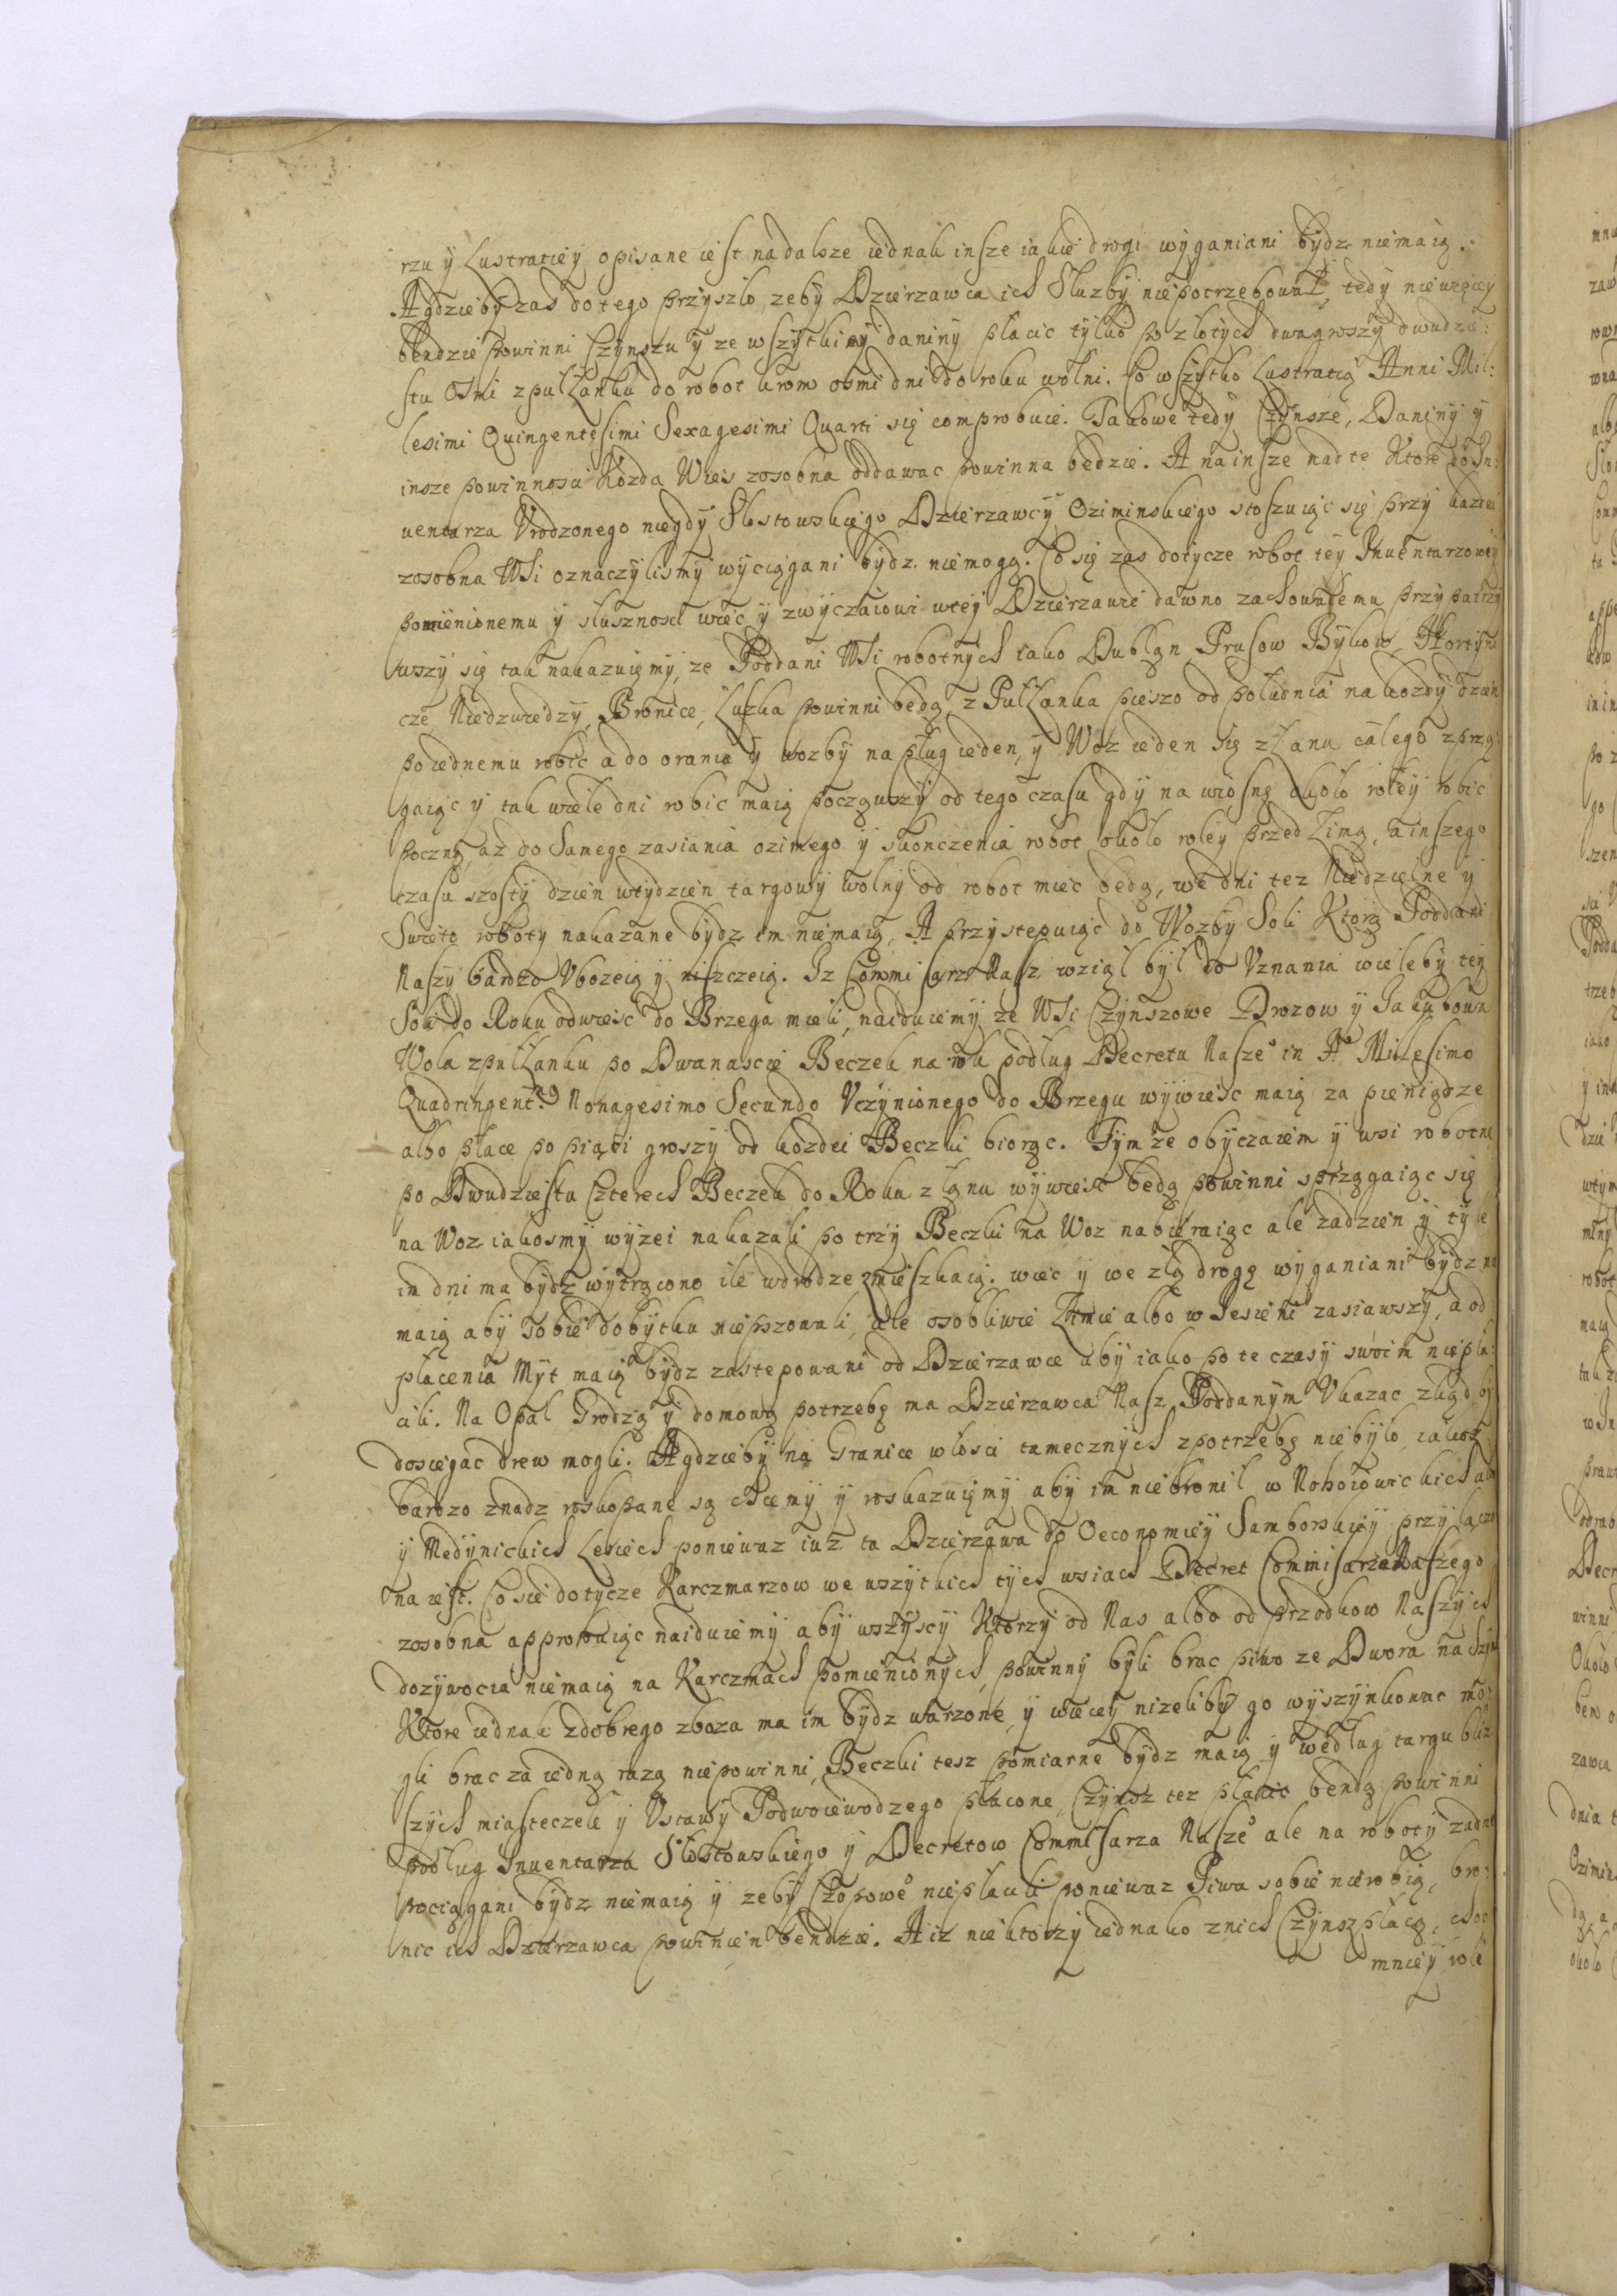 rzu y Lustratiey opisane iest nadalsze iednak insze iakie drogi wyganiani bydz niemaią.
A gdzieby zas do tego przyszlo, zeby Dzierzawca ich Sluzby niepotrzebował, tedy niewięcy
bendzie powinni Czynszu y ze wszytkimy daniny placic tylko po zlotych dwa groszy dwudzie:
stu Osmi z pułłanku do robot krom osmi dni do roku wolni. Co wszytko Lustratią Anni Mil:
lesimi Quingentesimi Sexagesimi Quarti się comprobuie. Takowe tedy Czynsze, Daniny y
insze powinnosci Kozda Wies zosobna oddawac powinna będzie. A na insze nad te Ktore do In:
uentarza Vrodzonego niegdy Słostowskiego Dzierzawcy Oziminskiego stoszuiąc się przy kazdei
zosobna Wsi oznaczylismy wyciągani bydz niemogą. Co się zas dotycze robot tey Inuentarzowey
pomienionemu y słusznosci wiec y zwyczaiowi wtey Dzierzawie dawno zachowałemu przypatrzy
wszy się tak nakazuiemy, ze Poddani Wsi robotnych iako Dublan Prusow Bykow, Hortyni
cze Niedzwiedzy, Bronice, Łuzka powinni będą z Pułłanka pieszo od południa na kozdy dzien
po iednemu robic a do orania y wozby na pług ieden, y Woz ieden się z Łanu całego z przę
gaiąc y tak wiele dni robic maią począwszy od tego czasu gdy na wiosnę około roley robic
poczną, az do Samego zasiania ozimego y skonczenia robot około roley przed Zimą, a inszego
czasu szosty dzien wtydzien targowy wolny od robot miec będą, we dni tez Niedzielne y
Swieto roboty nakazane bydz im niemaią, A przystepuiąc do Wozby Soli Ktorą Poddani
Naszy bardzo Vbozeią y niszczeią. Iz Commisarz Nasz wziąl był do Vznania wieleby tey
Soli do Roku odwiesc do Brzega mieli, naiduiemy ze Wsi Czynszowe Drozow y Jakubowa
Wola z pułłanku po Dwanascie Beczek na rok podług Decretu Nasze° in A° Millesimo
Quadringent:mo Nonagesimo Secundo Vczynionego do Brzegu wywiesc maią za pieniądze
albo place po piąci groszy od kozdei Beczki biorąc. Tym ze obyczaiem y wsi robotne
po Dwudziestu Czterech Beczek do Roku z łanu wywiesc będą powinni sprzągaiąc się
na Woz iakosmy wyzei nakazali po trzy Beczki na Woz nabieraiąc ale zadzien y tyle
im dni ma bydz wytrącono ile wdrodze zmieszkaią. wiec y we złą drogę wyganiani bydz nie
maią aby sobie dobytku niepszowali, ale osobliwie Zimie albo w Iesieni zasiawszy, a od
płacenia Myt maią bydz zastepowani od Dzierzawce aby iako po te czasy swoim niepla:
cili. Na Opal Grodzą y domową potrzebę ma Dzierzawca Nasz Poddanym Vkazac zkąd by
dosiegac drew mogli. A gdzieby na Granice włosci tamecznych z potrzebę niebyło, iakosz
bardzo znadz roskopane są chcemy y roskazuiemy aby im niebronił w Nohoiowickich albo
y Medynickich Lesiech poniewaz iuz ta Dzierzawa do Oeconomiey Samborskiey przyłączo
na iest. Co sie dotycze Karczmarzow we wszytkich tych wsiach Decret Commisarza Naszego
zosobna approbuiąc naiduiemy aby wszyscy Ktorzy od Nas albo od przodkow Naszych
dozywocia niemaią na Karczmach pomienionych, powinny byli brac piwo ze Dwora na Szynk
Ktore iednak zdobrego zboza ma im bydz warzone, y wiecey nizeliby go wyszynkowac mo:
gli brac za iedną razą niepowinni, Beczki tesz pomiarne bydz maią y według targu bliz
szych miasteczek y Vstawy Podwoiewodzego płacone, Czynsz tez płacic bendą powinni
podług Inuentarza Słostowskiego y Decretow Commisarza Nasze° ale na roboty zadne
pociągani bydz niemaią y zeby Czopowe° niepłacili poniewaz Piwa sobie nierobią, bro:
nic ich Dzierzawca powinien bendzie. A iz niektorzy iednako znich Czynsz płacą, choc
mniey role